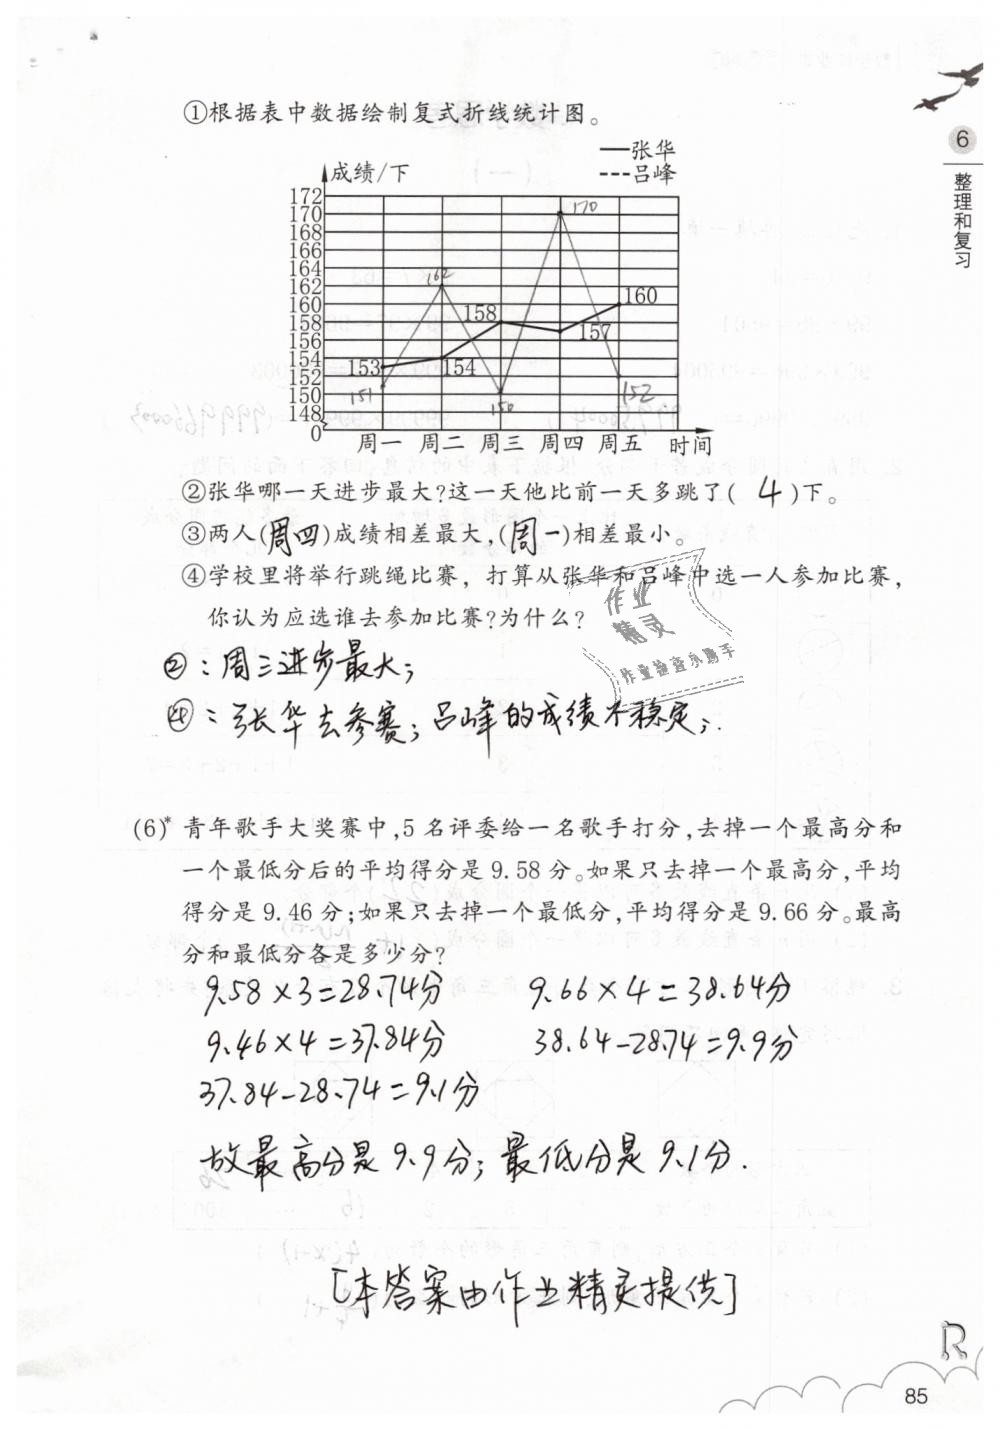 ①根据表中数据绘制复式折线统计图。
6
整理和复习
成绩/下
张华
吕峰
172
170
168
166
164
162
160
158
156
154
152
150
148
0
153
154
158
157
160
151
162
150
170
152
周一 周二 周三 周四 周五 时间
②张华哪一天进步最大?这一天他比前一天多跳了( 4 )下。
③两人(周四)成绩相差最大,(周一)相差最小。
④学校里将举行跳绳比赛，打算从张华和吕峰中选一人参加比赛，
你认为应选谁去参加比赛?为什么?
作业
精灵
作业检查小助手
②：周三进步最大；
④：张华去参赛；吕峰的成绩不稳定；.
(6)* 青年歌手大奖赛中,5 名评委给一名歌手打分,去掉一个最高分和
一个最低分后的平均得分是 9.58 分。如果只去掉一个最高分,平均
得分是 9.46 分;如果只去掉一个最低分,平均得分是 9.66 分。最高
分和最低分各是多少分?
9.58×3=28.74分 9.66×4=38.64分
9.46×4=37.84分 38.64-28.74=9.9分
37.84-28.74=9.1分
故最高分是9.9分；最低分是9.1分.
[本答案由作业精灵提供]
R
85